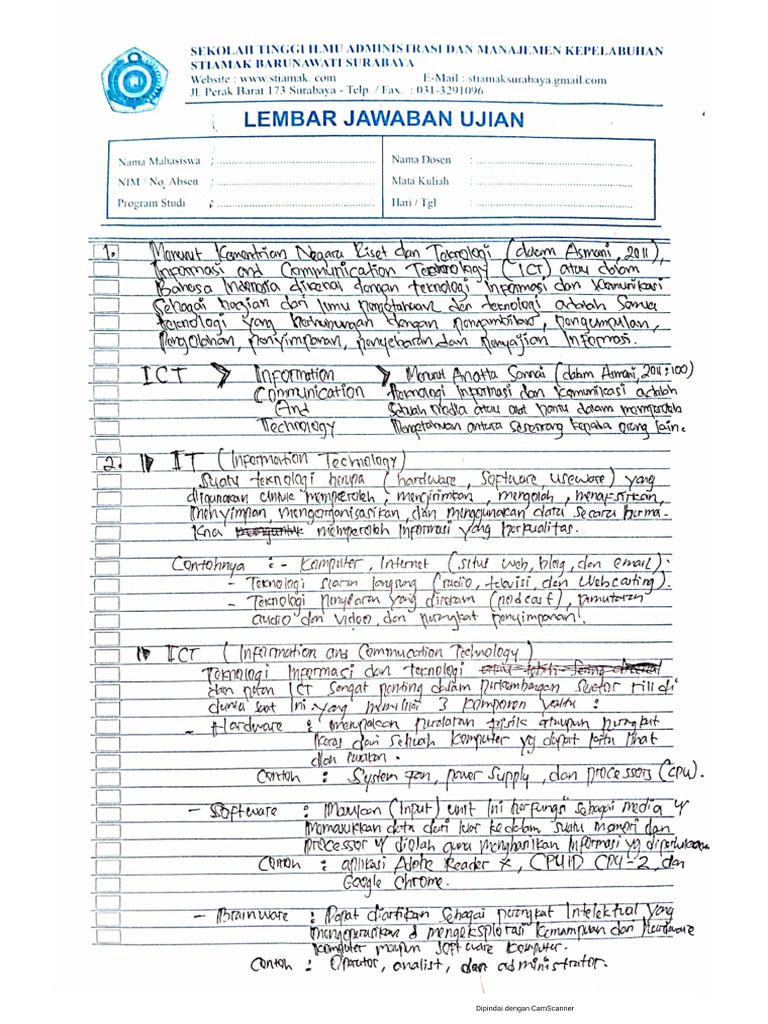 SEKOLAH TINGGI ILMU ADMINISTRASI DAN MANAJEMEN KEPELABUHAN
STIAMAK BARUNAWATI SURABAYA
Website : www.stiamak. com E-Mail : stiamaksurabaya.gmail.com
Jl. Perak Barat 173 Surabaya - Telp. / Fax. : 031-3291096
LEMBAR JAWABAN UJIAN
Nama Mahasiswa : Nama Dosen :
NIM / No. Absen : Mata Kuliah :
Program Studi : Hari / Tgl :
1. Menurut Kementrian Negara Riset dan Teknologi (dalam Asmani, 2011),
Informasi and Communication Technology (ICT) atau dalam
Bahasa Indonesia dikenal dengan teknologi Informasi dan Komunikasi
Sebagai bagian dari Ilmu pengetahuan dan teknologi adalah Semua
teknologi yang berhubungan dengan pengambilan, pengumpulan,
Pengolahan, penyimpanan, penyebaran dan penyajian Informasi.
ICT Information Menurut Anatta Sannai (dalam Asmani, 2011:100)
Communication teknologi Informasi dan Komunikasi adalah
And Sebuah Media atau alat bantu dalam memperoleh
Technology Pengetahuan antara Seseorang kepada orang lain.
2. IT (Information Technology)
Suatu teknologi berupa (hardware, Software, useware) yang
digunakan Untuk memperoleh, mengirimkan, mengolah, menafsirkan,
Menyimpan, mengorganisasikan, dan menggunakan data secara berma-
Kna memperoleh Informasi yang berkualitas.
Contohnya : - Komputer, Internet (situs web, blog, dan email).
- Teknologi siaran langsung (radio, televisi, dan Webcasting).
- Teknologi penyiaran yang direkam (podcast), pemutaran
audio dan video, dan perangkat penyimpanan.
ICT (Information and Communication Technology)
Teknologi Informasi dan teknologi
dan peran ICT Sangat penting dalam perkembangan Sector riil di
dunia saat Ini yang memiliki 3 komponen yaitu :
- Hardware : merupakan peralatan fisik ataupun perangkat
Keras dari sebuah komputer yg dapat kita lihat
dan rasakan.
Contoh : System Fan, power Supply, dan processors (CPU).
- Software : Masukan (Input) unit Ini berfungsi sebagai media u/
Memasukkan data dari luar ke dalam suatu memori dan
processor u/ diolah guna menghasilkan Informasi yg diperlukan.
Contoh : aplikasi Adobe Reader X, CPUID CPU-Z, dan
Google Chrome.
- Brainware : Dapat diartikan sebagai perangkat Intelektual yang
mengoperasikan & mengeksplorasi Kemampuan dari Hardware
Komputer maupun Software Komputer.
Contoh : Operator, analist, dan administrator.
Dipindai dengan CamScanner